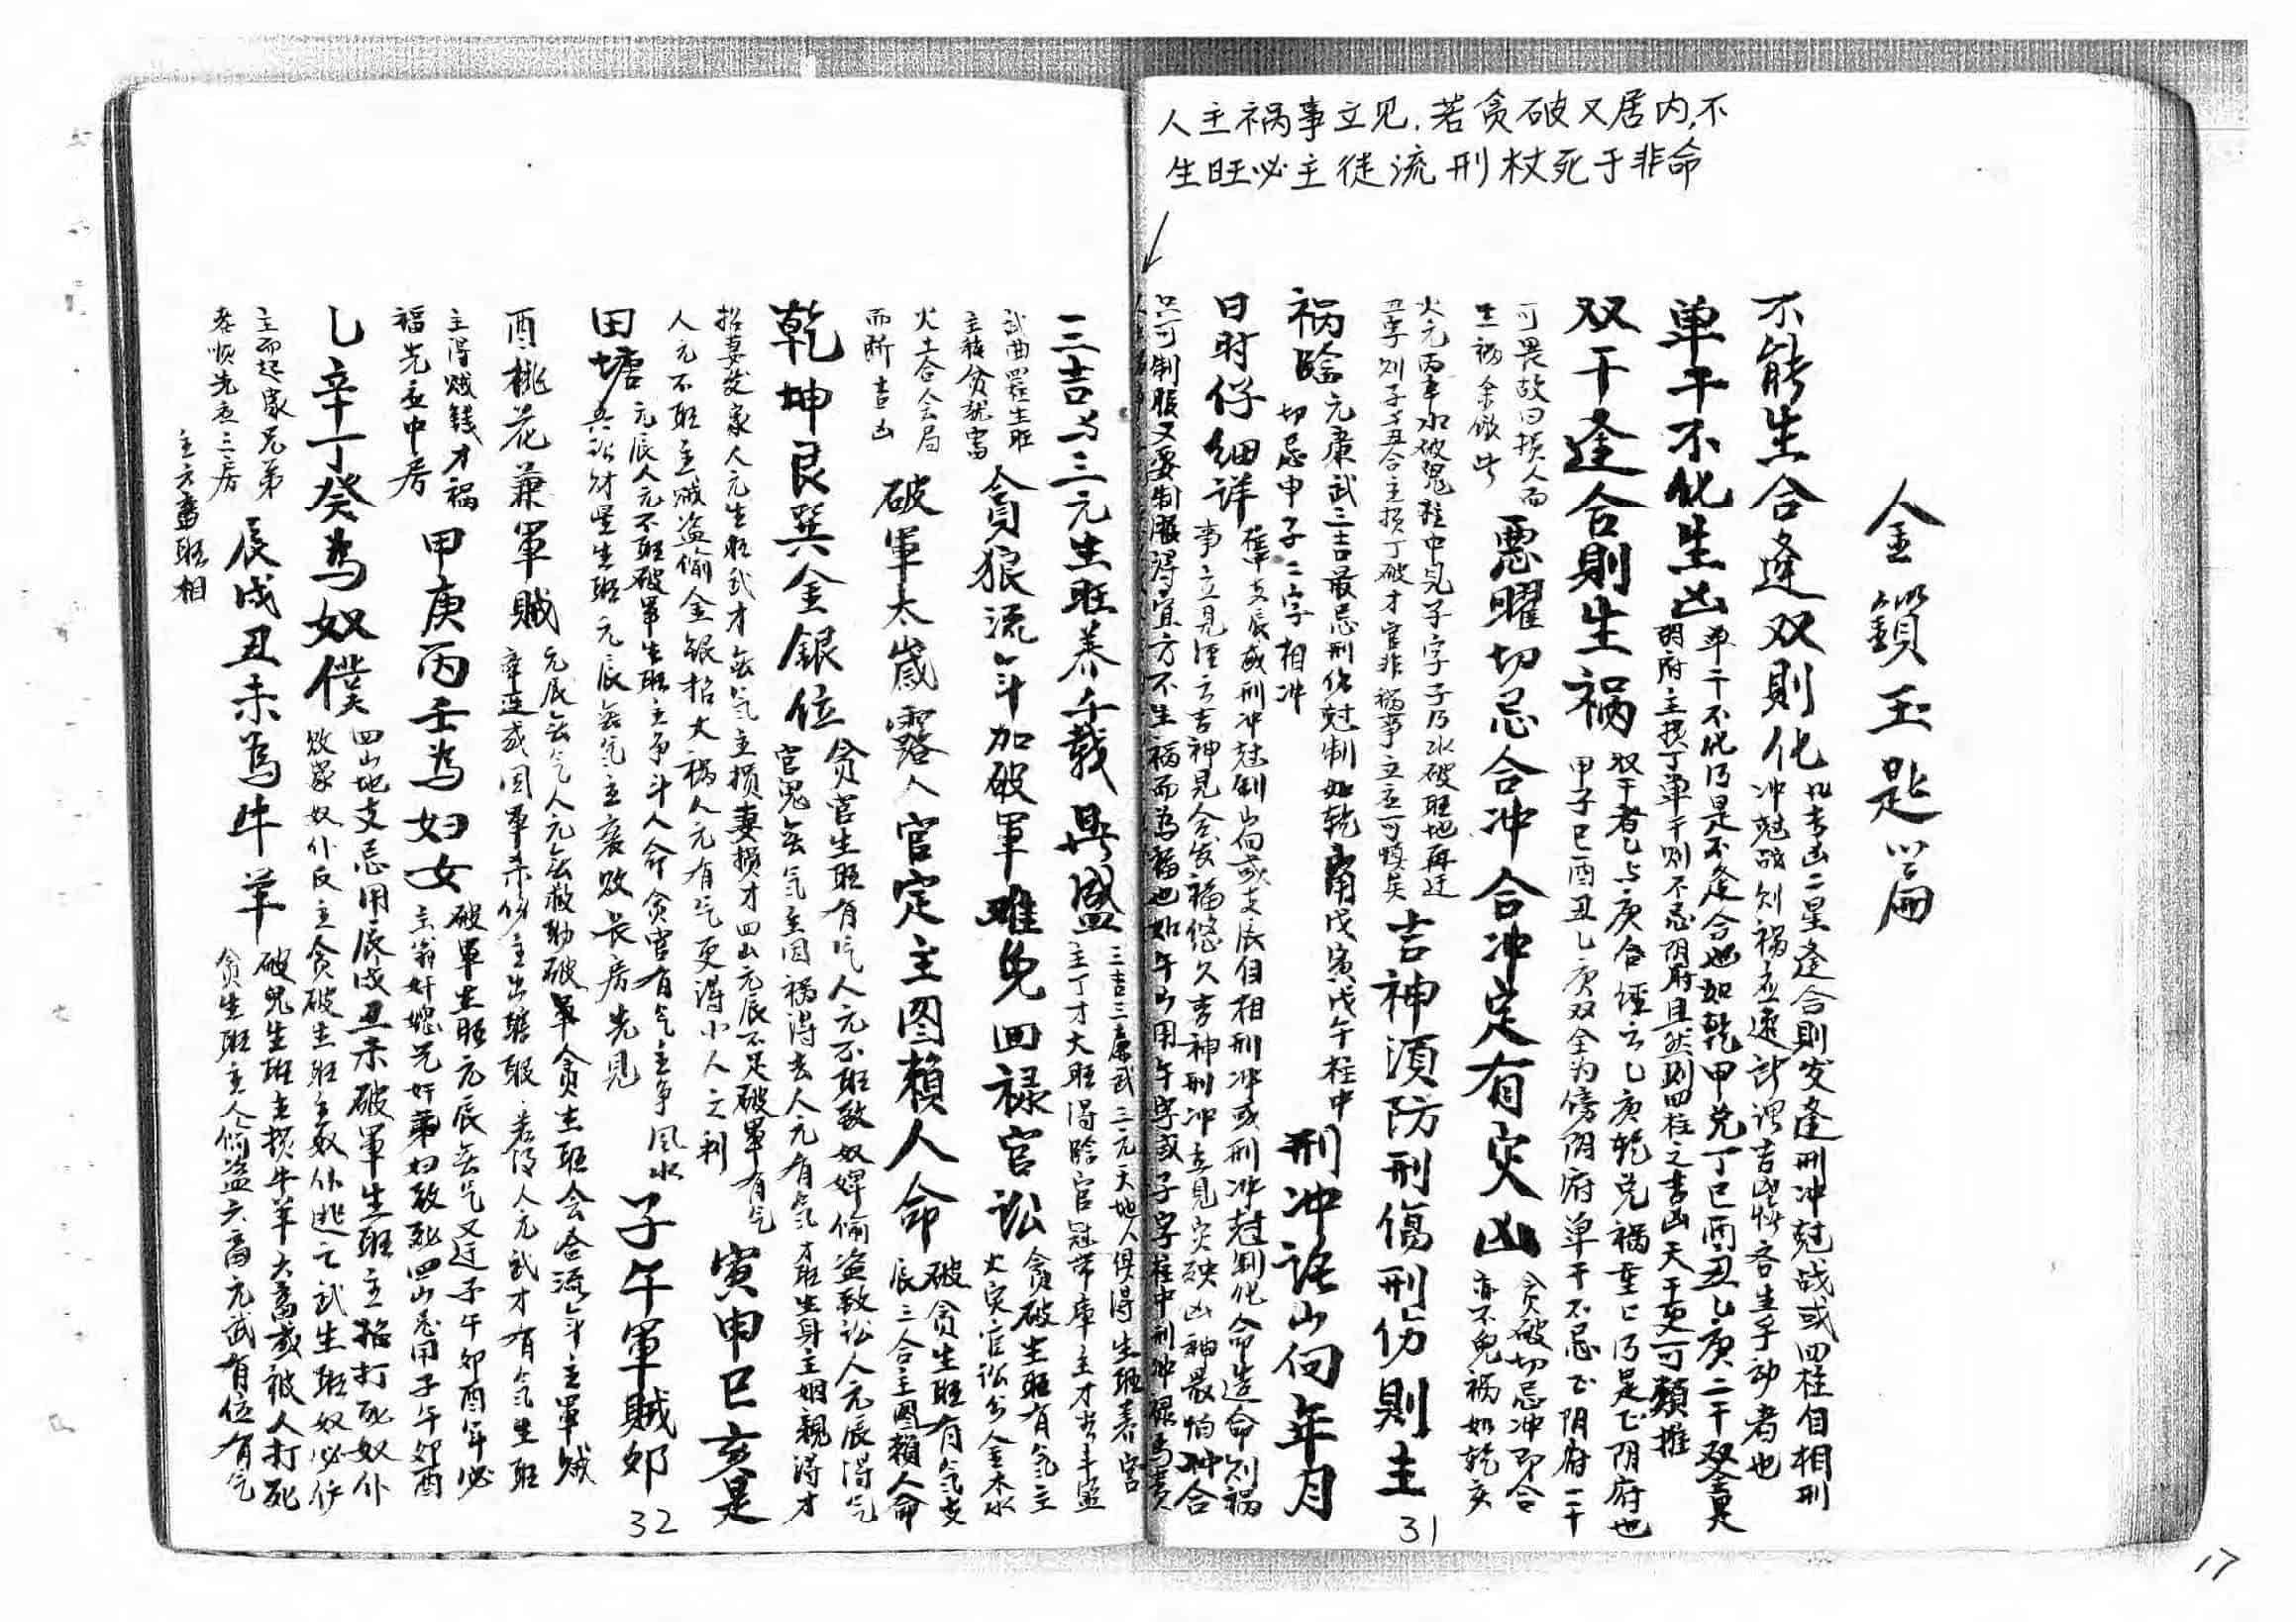 人主祸事立见,若贪破又居内,不
生旺必主徒流刑杖死于非命
金鎖玉匙篇
不能生合逢双則化
吉凶二星逢合則发逢刑冲尅战或四柱自相刑
冲尅战则祸立速
吉凶悔吝生乎动者也
单干不化生凶
单干不化乃是不逢合也如乾甲兑丁巳酉丑乙庚二干双全是
阴府主损丁单干则不忌阴府且然则四柱之吉凶天干更可類推
双干逢合則生祸
双干者乙与庚合经云乙庚乾兑祸重乃是正阴府也
甲子巳酉丑乙庚双全为傍阴府单干不忌正阴府二干
可畏故曰损人而
生祸余倣此
悪曜切忌合冲合冲定有灾凶
贪破切忌冲即合
亦不免祸如乾亥
火元丙辛水破鬼柱中见子字子乃水破旺地再迂
丑字则子与丑合主损丁破才官非祸事立至可慎矣
吉神須防刑傷刑伤則主
祸险
元廉武三吉最忌刑伤尅制如乾
戊寅戊午柱中
切忌申子二字相冲
刑冲詳山向年月
日时仔细详
支辰或刑冲尅制山向或支辰自相刑冲或刑冲尅制化命造命则祸
事立见经云吉神见合发福悠久吉神刑冲立见灾殃凶神最怕冲合
只可制服又要制服得宜方不生祸而為福也如午山用午字或子字柱中刑冲禄马贵
三吉与三元生旺养千载興盛
三吉三廉武三元天地人俱得生旺养宫
主丁才大旺得临官冠带库主才
武曲
生旺
主
貪狼流年加破軍难免回禄官訟
贪破生旺有气主
火灾官讼
金木水
火土合人会局
而断吉凶
破軍太歲露人官定主图賴人命
破贪生旺有气支
辰三合主图赖人命
乾坤艮巽金銀位
贪官生旺有气人元不旺致奴婢偷盗致讼人元辰得气
官鬼无气主因祸得去人元有气才旺生身主姻親得才
招妻发家人元生旺武才無气主损妻损才四山元辰不足破軍有气
人元不旺主贼盗偷金銀招大祸人元有气更得小人之利
寅申巳亥是
田塘
元辰人元不旺破軍生旺主争斗人命贪官有气主争风水
兵讼财星生旺元辰無气主衰败长房先見
子午軍賊卯
酉桃花兼軍賊
元辰無气人元無救助破軍贪生旺会合流年主軍贼
牵连或因軍
主出
人元武才有气生旺
主得贼钱才祸
福先在中房
甲庚丙壬為妇女
破軍生旺元辰無气又迂子午卯酉年必
主翁奸媳兄奸弟妇致死四山忌用子午卯酉
乙辛丁癸為奴僕
四山地支忌用辰戌丑未破軍生旺主招打死奴仆
败家奴仆反主贪破生旺主奴仆逃亡武生旺奴必作
主而起家兄弟
孝顺先应三房
辰戌丑未為牛羊
破鬼生旺主损牛羊六畜或被人打死
贪生旺主人偷盗六畜元武有位有气
主六畜旺相
31
32
17